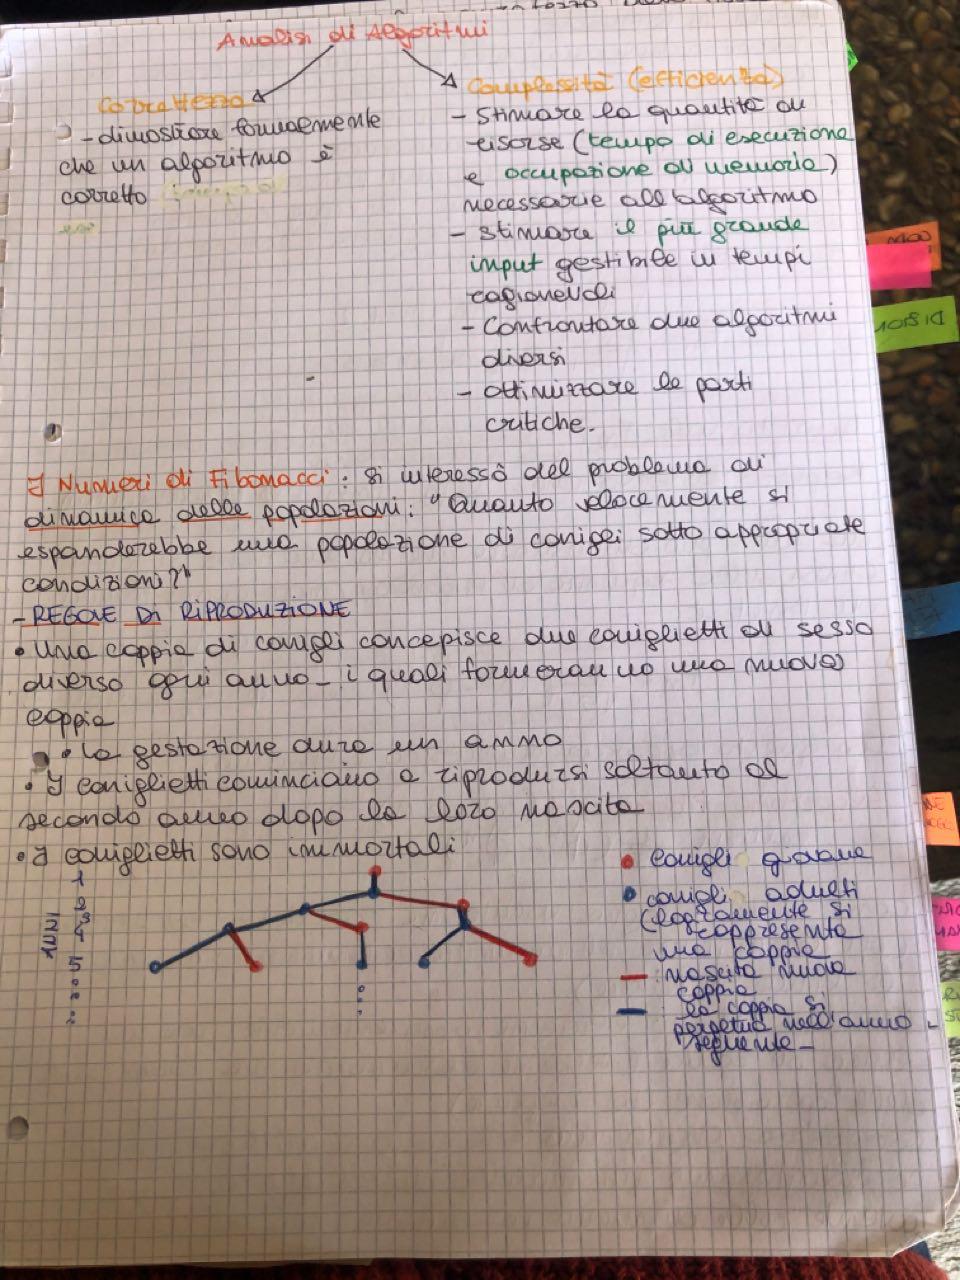 Analisi di Algoritmi
Correttezza
- dimostrare formalmente
che un algoritmo è
corretto
Complessità (efficienza)
- Stimare la quantità di
risorse (tempo di esecuzione
e occupazione di memoria)
necessarie all'algoritmo
- stimare il più grande
input gestibile in tempi
ragionevoli
- Confrontare due algoritmi
diversi
- ottimizzare le parti
critiche.
I Numeri di Fibonacci: si interessò del problema di
dinamica delle popolazioni: "Quanto velocemente si
espanderebbe una popolazione di conigli sotto appropriate
condizioni?"
- REGOLE DI RIPRODUZIONE
• Una coppia di conigli concepisce due coniglietti di sesso
diverso ogni anno - i quali formeranno una (nuova)
coppia
• la gestazione dura un anno
• I coniglietti cominciano a riprodursi soltanto al
secondo anno dopo la loro nascita
• I coniglietti sono immortali
ANNI
1
2
3
4
5
...
• conigli giovane
• conigli adulti
(logicamente si
rappresenta
una coppia
— nascita nuova
coppia
— la coppia si
perpetua nell'anno
seguente -
DISTION